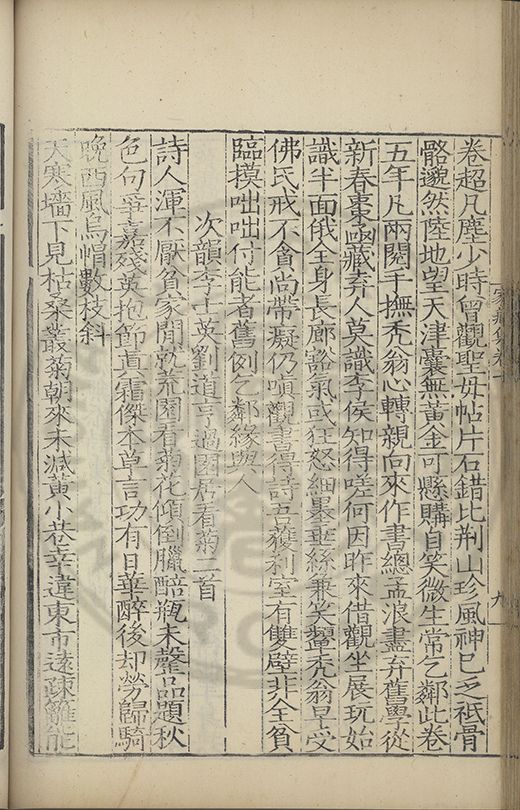 卷超凡塵少時曾觀聖母帖片石錯比荆山珍風神已乏祇骨
骼邈然陸地望天津囊無黃金可懸購自笑微生常乞鄰此卷
五年凡兩閱手撫禿翁心轉親向來作書總孟浪盡弃舊學從
新春棗函藏弃人莫識李侯知得嗟何因昨來借觀坐展玩始
識半面俄全身長廊豁氣或狂怒細墨垂絲兼笑顰禿翁早受
佛氏戒不貪尚帶癡仍嗔觀書得詩吾獲利室有雙璧非全貧
臨摸咄咄付能者舊例乞鄰緣與人
次韻李士英劉道亨過園居看菊二首
詩人渾不厭貧家閒就荒園看菊花傾倒臘醅瓶未罄品題秋
色句爭嘉殘英抱節真霜傑本草言功有日華醉後却勞歸騎
晚西風烏帽數枝斜
天寒墻下見枯桑叢菊朝來未減黃小巷幸違東市遠疎籬能
九